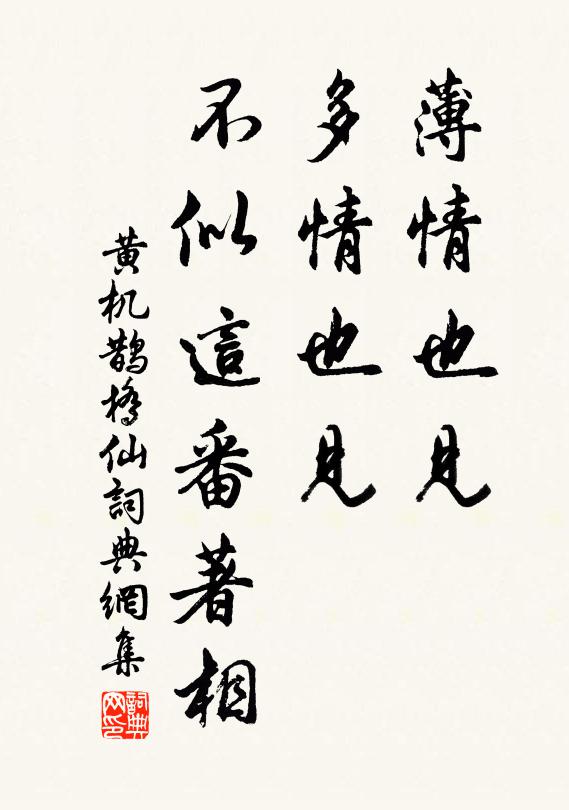 薄情也見
多情也見
不似這番著相
黄机鵲橋仙詞典網集
詞典网印